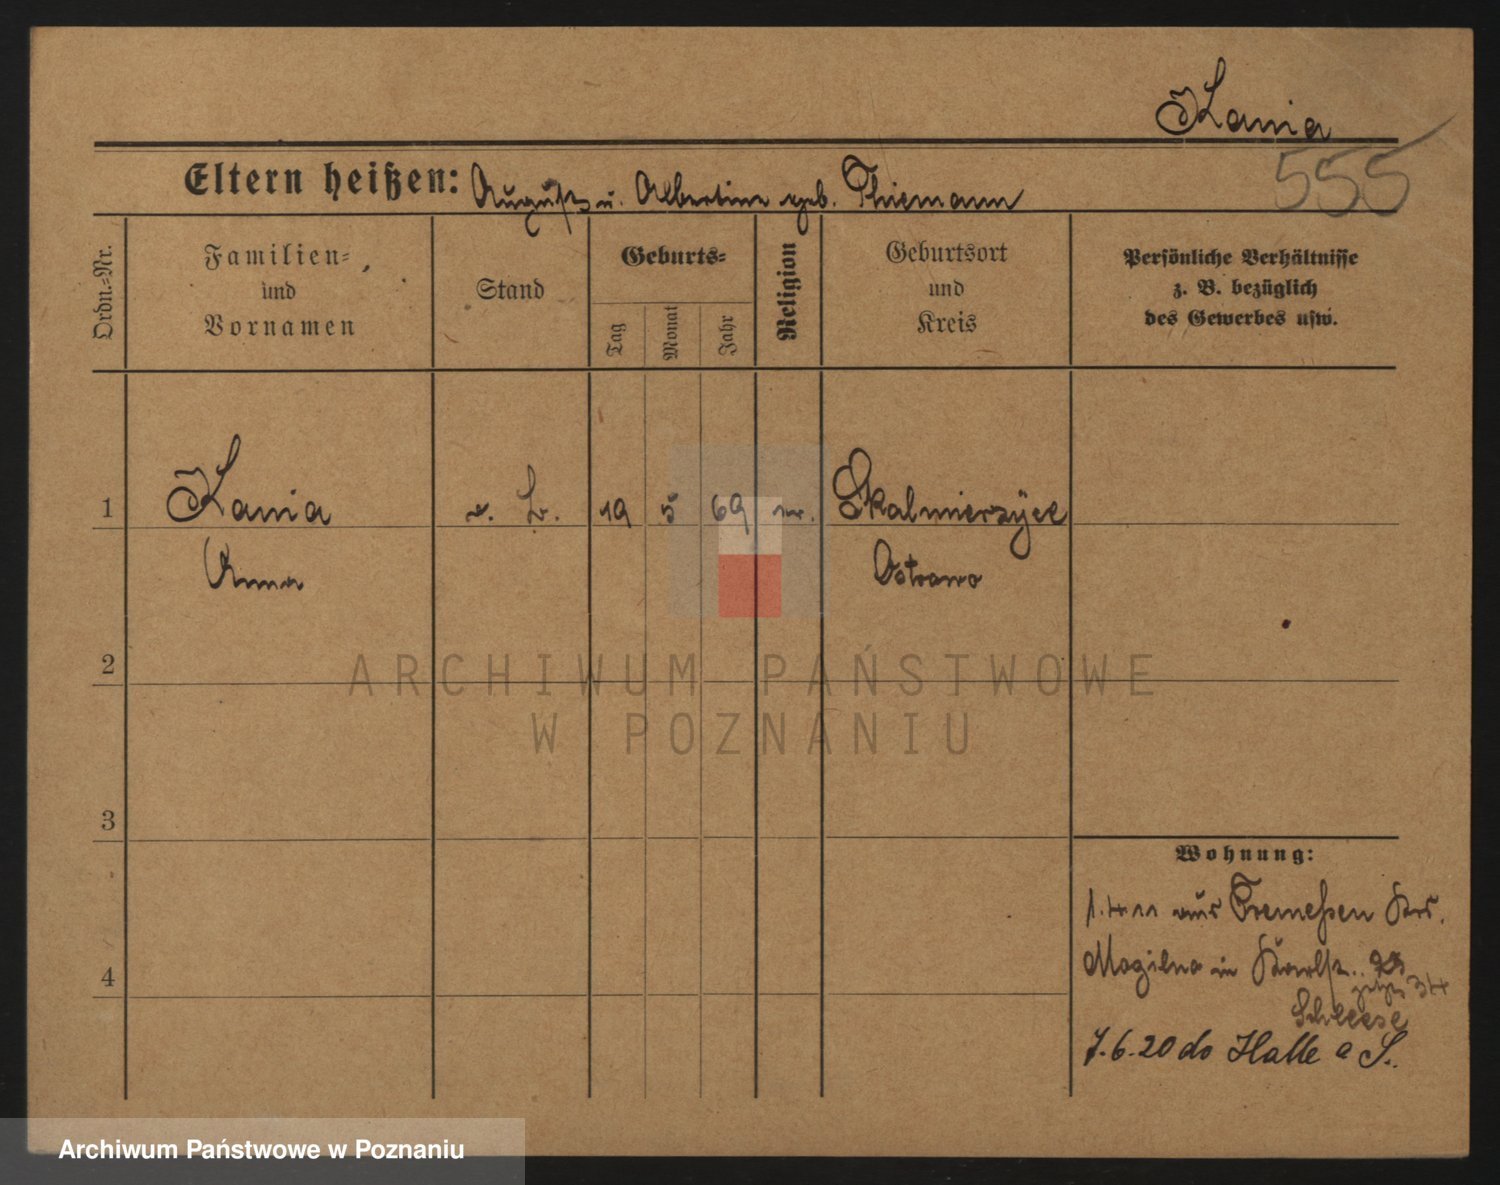 Kania
555
Eltern heißen: August u. Albertine geb. Thiemann
Ordn.-Nr.
Familien-
und
Vornamen
Stand
Geburts-
Tag
Monat
Jahr
Religion
Geburtsort
und
Kreis
Persönliche Verhältnisse
z. B. bezüglich
des Gewerbes usw.
1 Kania 19 5 69 Skalmierzyce
Anna Ostrowo
2
ARCHIWUM PAŃSTWOWE
W POZNANIU
3
Wohnung:
1.4 11 aus Tremeßen Krs.
4
Mogilno in
jetzt 34
7.6.20 do Halle a S.
Archiwum Państwowe w Poznaniu